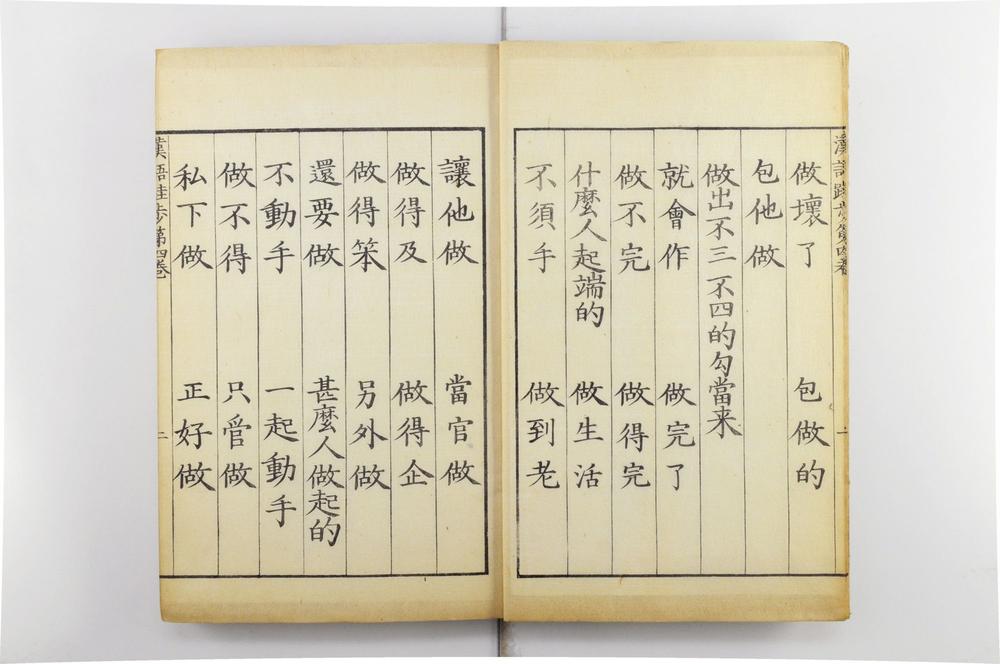 漢語跬步第四卷 一
做壞了 包做的
包他做
做出不三不四的勾當来
就會作 做完了
做不完 做得完
什麼人起端的 做生活
不須手 做到老
讓他做 當官做
做得及 做得企
做得笨 另外做
還要做 甚麼人做起的
不動手 一起動手
做不得 只管做
私下做 正好做
漢語跬步第四卷 二